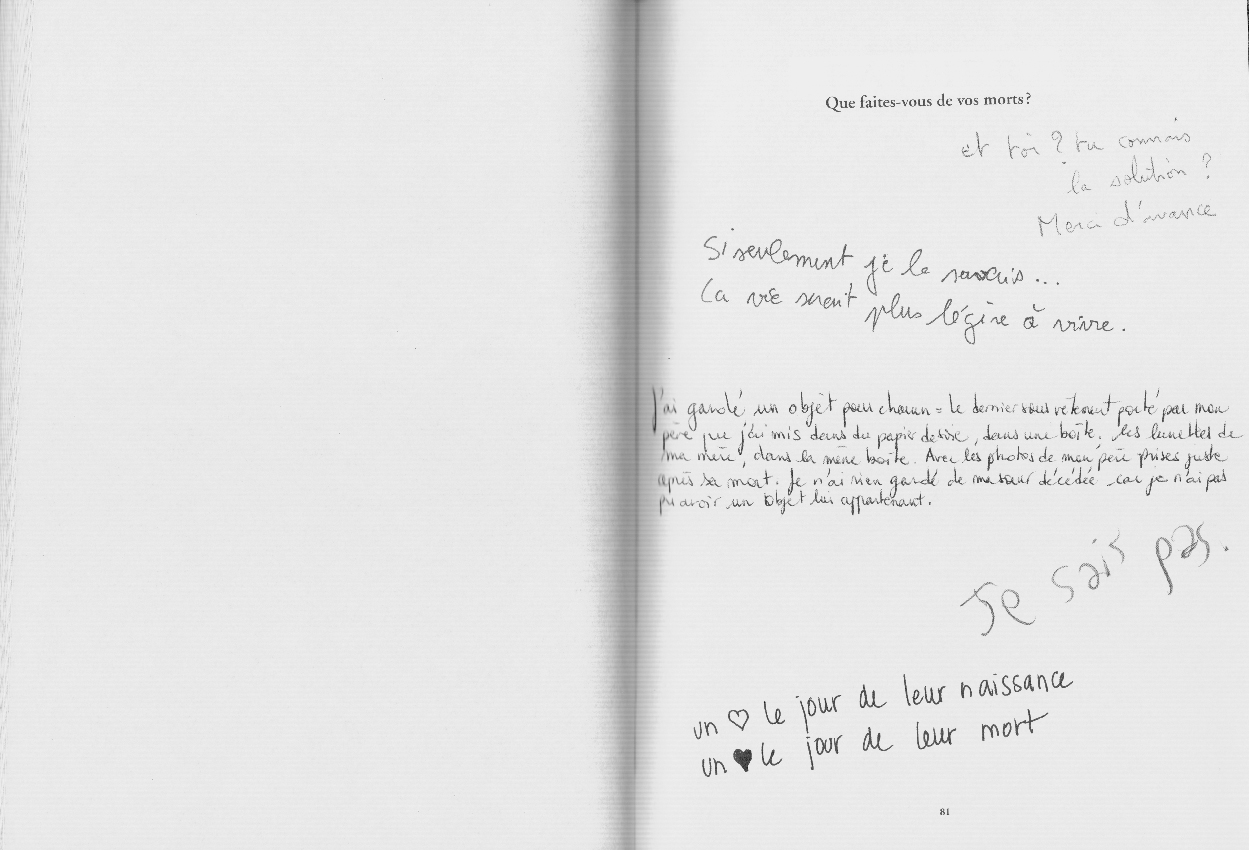 Que faites-vous de vos morts?
et toi ? tu connais
la solution ?
Merci d'avance
Si seulement je le savais...
La vie serait plus légère à vivre.
J'ai gardé un objet pour chacun = le dernier sous vêtement porté par mon
père que j'ai mis dans du papier de soie, dans une boîte. les lunettes de
ma mère, dans la même boîte. Avec les photos de mon père prises juste
après sa mort. Je n'ai rien gardé de ma sœur décédée car je n'ai pas
pu avoir un objet lui appartenant.
Je sais pas.
un ♡ le jour de leur naissance
un ♥ le jour de leur mort
81